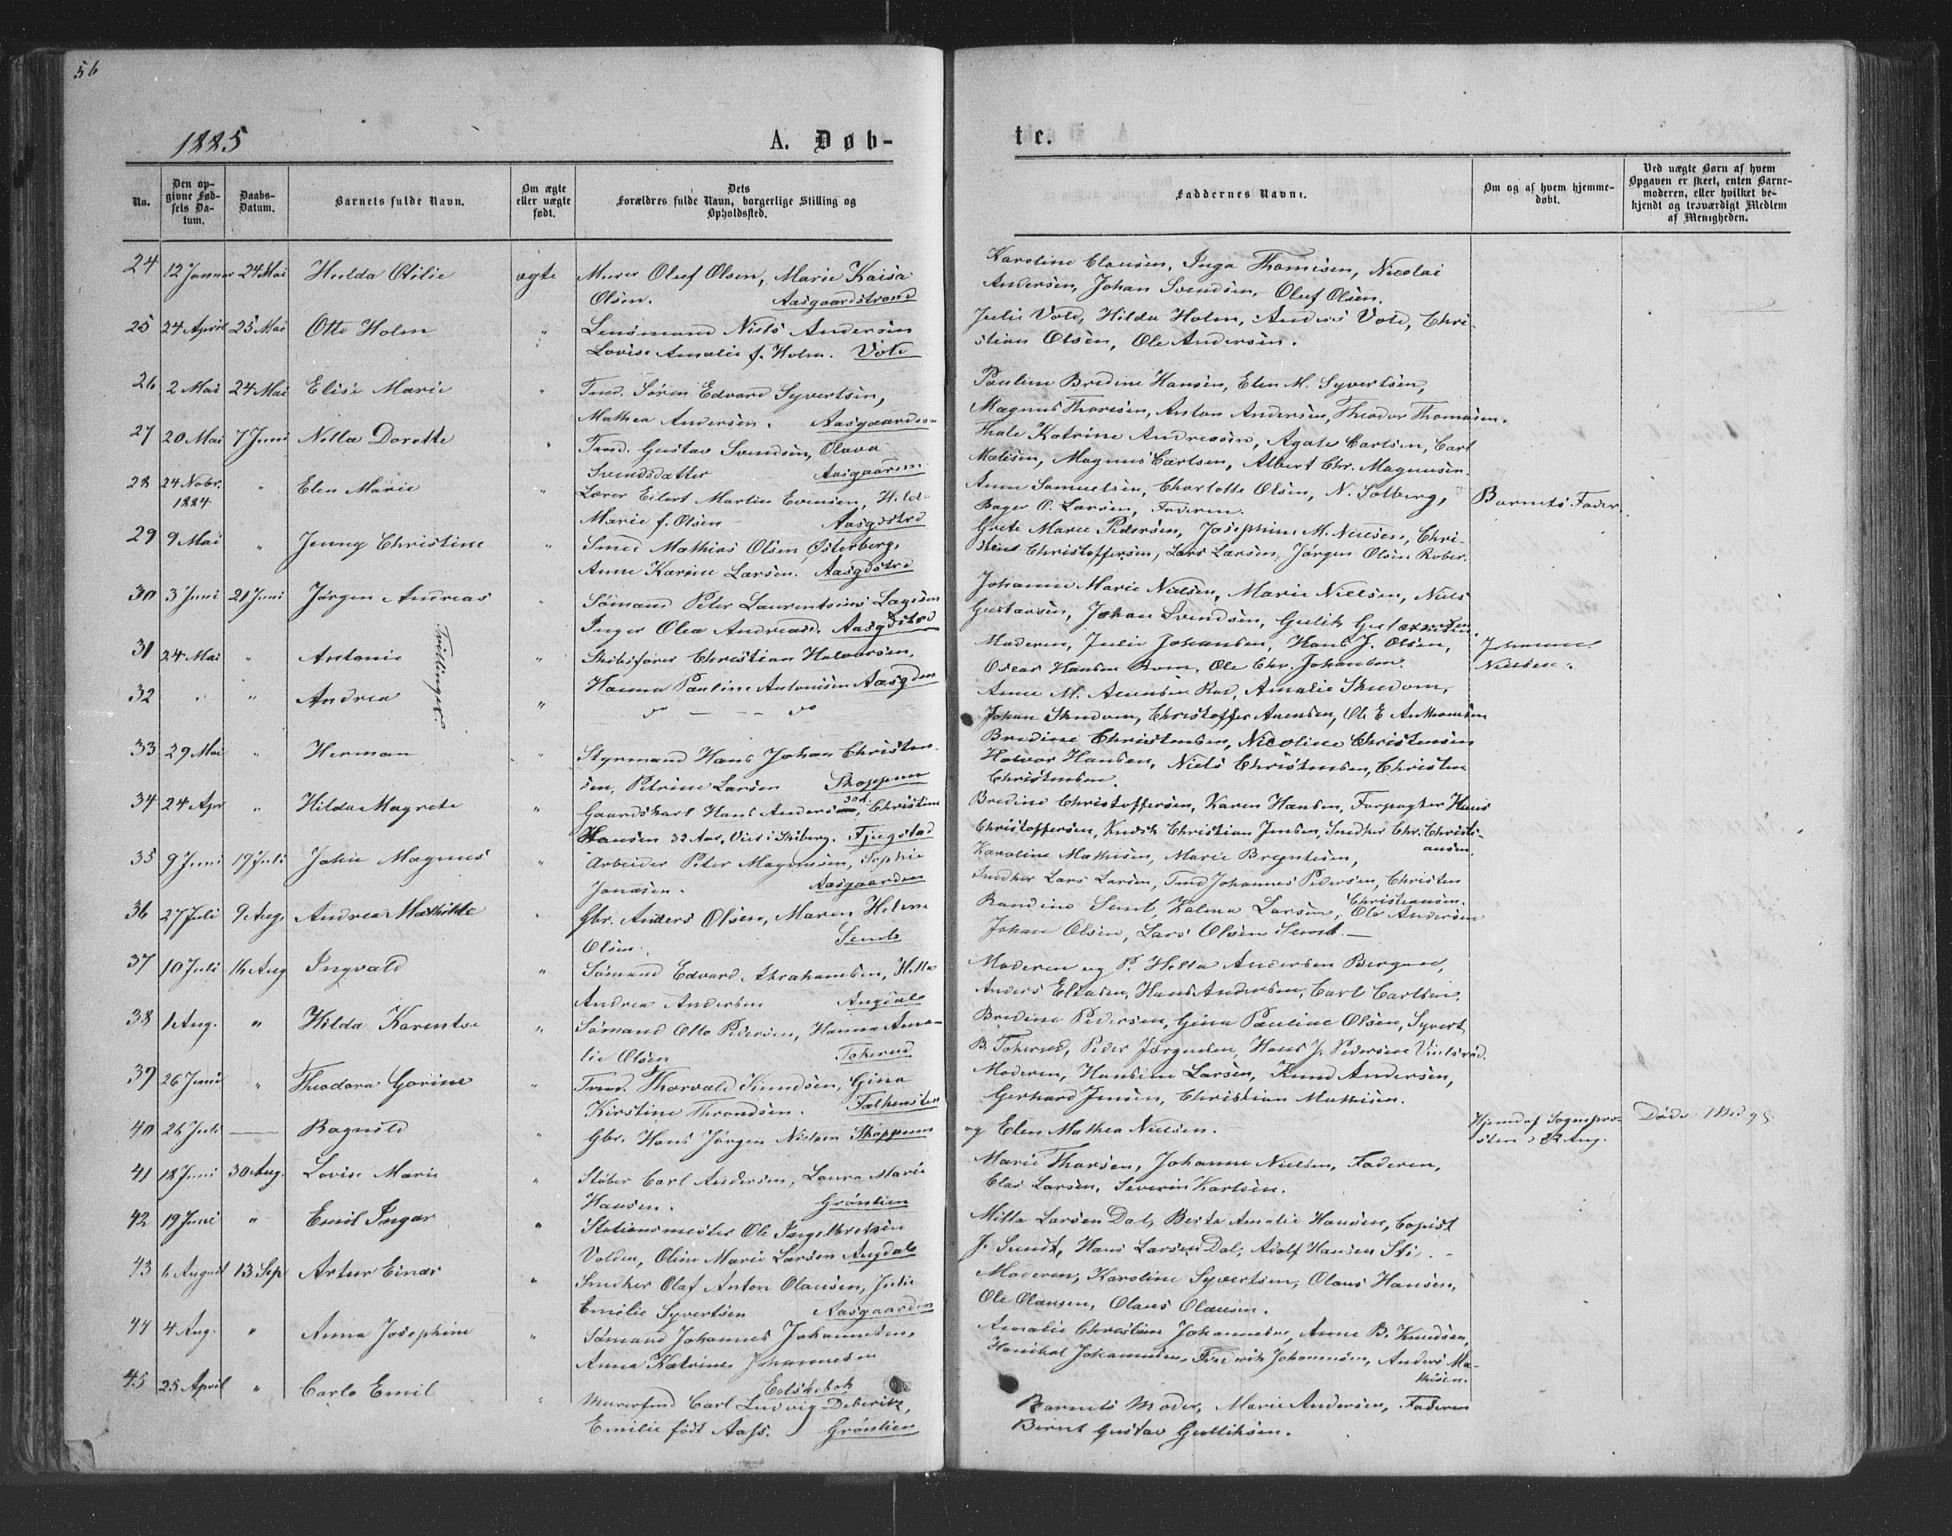 56
1885
A. Døb-
te.
No.
Den op-
givne Fød-
sels Da-
tum.
Daabs-
Datum.
Barnets fulde Navn.
Om ægte
eller uægte
født.
Dets
Forældres fulde Navn, borgerlige Stilling og
Opholdssted.
Faddernes Navne.
Om og af hvem hjemme-
døbt.
Ved uægte Børn af hvem
Opgaven er skeet, enten Barne-
moderen, eller hvilket be-
kjendt og troværdigt Medlem
af Menigheden.
24 12 Januar 24 Mai Hulda Otilie ægte Murer Oluf Olsen, Marie Kaisa
Olsen. Aasgaardstrand
Karoline Clausen, Inga Thomisen, Nicolai
Andersen, Johan Svendsen, Oluf Olsen.
25 24 April 25 Mai Otto Holm " Lensmand Niels Andersen
Lovise Amalie f. Holm. Vold
Julie Vold, Hilda Holm, Anders Vold, Chri-
stian Olsen, Ole Andersen.
26 2 Mai 24 Mai Elise Marie " Tmd. Søren Edvard Syvertsen,
Mathea Andersen.
Pauline Bredine Hansen, Elen M. Syvertsen,
Magnus Thoresen, Anton Andersen, Theodor Thomasen.
27 20 Mai 7 Juni Nilla Dorette " Tmd. Gustav Svendsen, Olava
Svendsdatter
Thale Katrine Andresen, Agate Carlsen, Carl
Matisen, Magnus Carlsen, Albert Chr. Magnusen.
28 24 Nobr. 1884 " Elen Marie " Lærer Eilert Martin Evensen, Hild-
Marie f. Olsen Aasgdstrd
Anne Samuelsen, Charlotte Olsen, N. Solberg,
Bager O. Larsen, Faderen.
Barnets Fader
29 9 Mai " Jenny Christine " Smed Mathias Olsen Østerberg,
Anne Karine Larsen. Aasgdstrd
Grete Marie Pedersen, Josephine M. Nielsen, Chri-
stens Christoffersen, Lars Larsen, Jørgen Olsen
30 3 Juni 21 Juni Jørgen Andreas " Sømand Peter Laurentsius
Inger Olea Andreasd. Aasgdstrd
Johanne Marie Nielsen, Marie Nielsen, Niels
Gustavsen, Johan Svendsen, Gulik
31 24 Mai " Antonie Tvillinger. " Skibsfører Christian Halvorsen,
Hanna Pauline Antonisen Aasgden
Moderen, Julie Johansen, Hans J. Olsen,
Oscar Hansen Rom, Ole Chr. Johansen.
Johanne
Nielsen.
32 " " Andrea "
Anne M. Amundsen Rød, Amalie
Johan Christoffer Ole E
33 29 Mai " Herman " Styrmand Hans Johan Christen-
sen, Petrine Larsen Skoppum
Bredine Christensen, Nicoline Christensen
Halvor Hansen, Niels Christensen, Christen
Christensen.
34 24 Apr " Hilda Magrete " Gaardskarl Hans Anderssen, Christine
Hansen 32 Aar, Viet i Skiberg. Fjugstad
Bredine Christoffersen, Karen Hansen, Forpagter Hans
Christoffersen, Knud Christian Jensen, Snedker Chr. Christi-
ansen.
35 9 Juni 19 Juli Johan Magnus " Arbeider Peter Magnusen, Sophie
Jonasen. Aasgaarden
Karoline Mathisen, Marie Bryntesen,
Snedker Lars Larsen, Tmd Johannes Pedersen, Christen
Christiansen.
36 27 Juli 9 Aug. Andrea Mathilde " Gbr. Anders Olsen, Maren Helene
Olsen. Semb
Randine Semb, Kalma Larsen, Ole Andersen
Johan Olsen, Lars Olsen Semb.
37 10 Juli 16 Aug Ingvald " Sømand Edvard Abrahamsen, Hella
Andrea Andersen Augdal
Moderen og P. Hella Andersen
Anders Eliasen, Hans Andersen, Carl Carlsen.
38 1 Aug. " Hilda Karentse " Sømand Otto Pedersen, Hanna Ama-
lie Olsen Tokerud
Bredine Pedersen, Gina Pauline Olsen, Syvert
B. Tokerud, Peder Jørgensen, Hans J. Pedersen
39 26 Juni " Theodora Gorine " Tmd. Thorvald Knudsen, Gina
Kirstine Throndsen. Falkensten
Moderen, Hansine Larsen, Knud Andersen,
Gerhard Jensen, Christian Mathisen.
40 26 Juli — Ragnild " Gbr. Hans Jørgen Nielsen Skoppum
og Elen Mathea Nielsen.
Hjemd af Sognepre-
sten Aug.
Døde
41 18 Juni 30 Aug. Lovise Marie " Støber Carl Andersen, Laura Marie
Hansen. Grønlien
Marie Thorsen, Johanne Nielsen, Faderen,
Clas Larsen, Severin Karlsen.
42 19 Juni " Emil Ingar " Stationsmester Ole Ingelbretsen
Volden, Oline Marie Larsen Augdal
Milla Larsen Dal, Berta Amalie Hansen, Copist
J. Sundt, Hans Larsen Dal, Adolf Hansen Sti.
43 6 August 13 Sep Artur Einar " Snedker Olaf Anton Olausen, Julie
Emilie Syvertsen Aasgaarden
Moderen, Karoline Syvertsen, Olaus Hansen,
Ole Olausen, Olaus Olausen.
44 4 Aug. " Anna Josephine " Sømand Johannes Johannesen,
Anna Katrine Johannesen
Amalie Christine Johannesen, Anne B. Knudsen,
Hanibal Johannesen, Fredrik Johannesen, Anders Ma-
thisen.
45 25 April " Carlo Emil " Murersvd Carl Ludvig Deberitz,
Emilie født Aass. Grønlien
Barnets Moder, Marie Andersen, Faderen
Bernt Gustav Gulliksen.